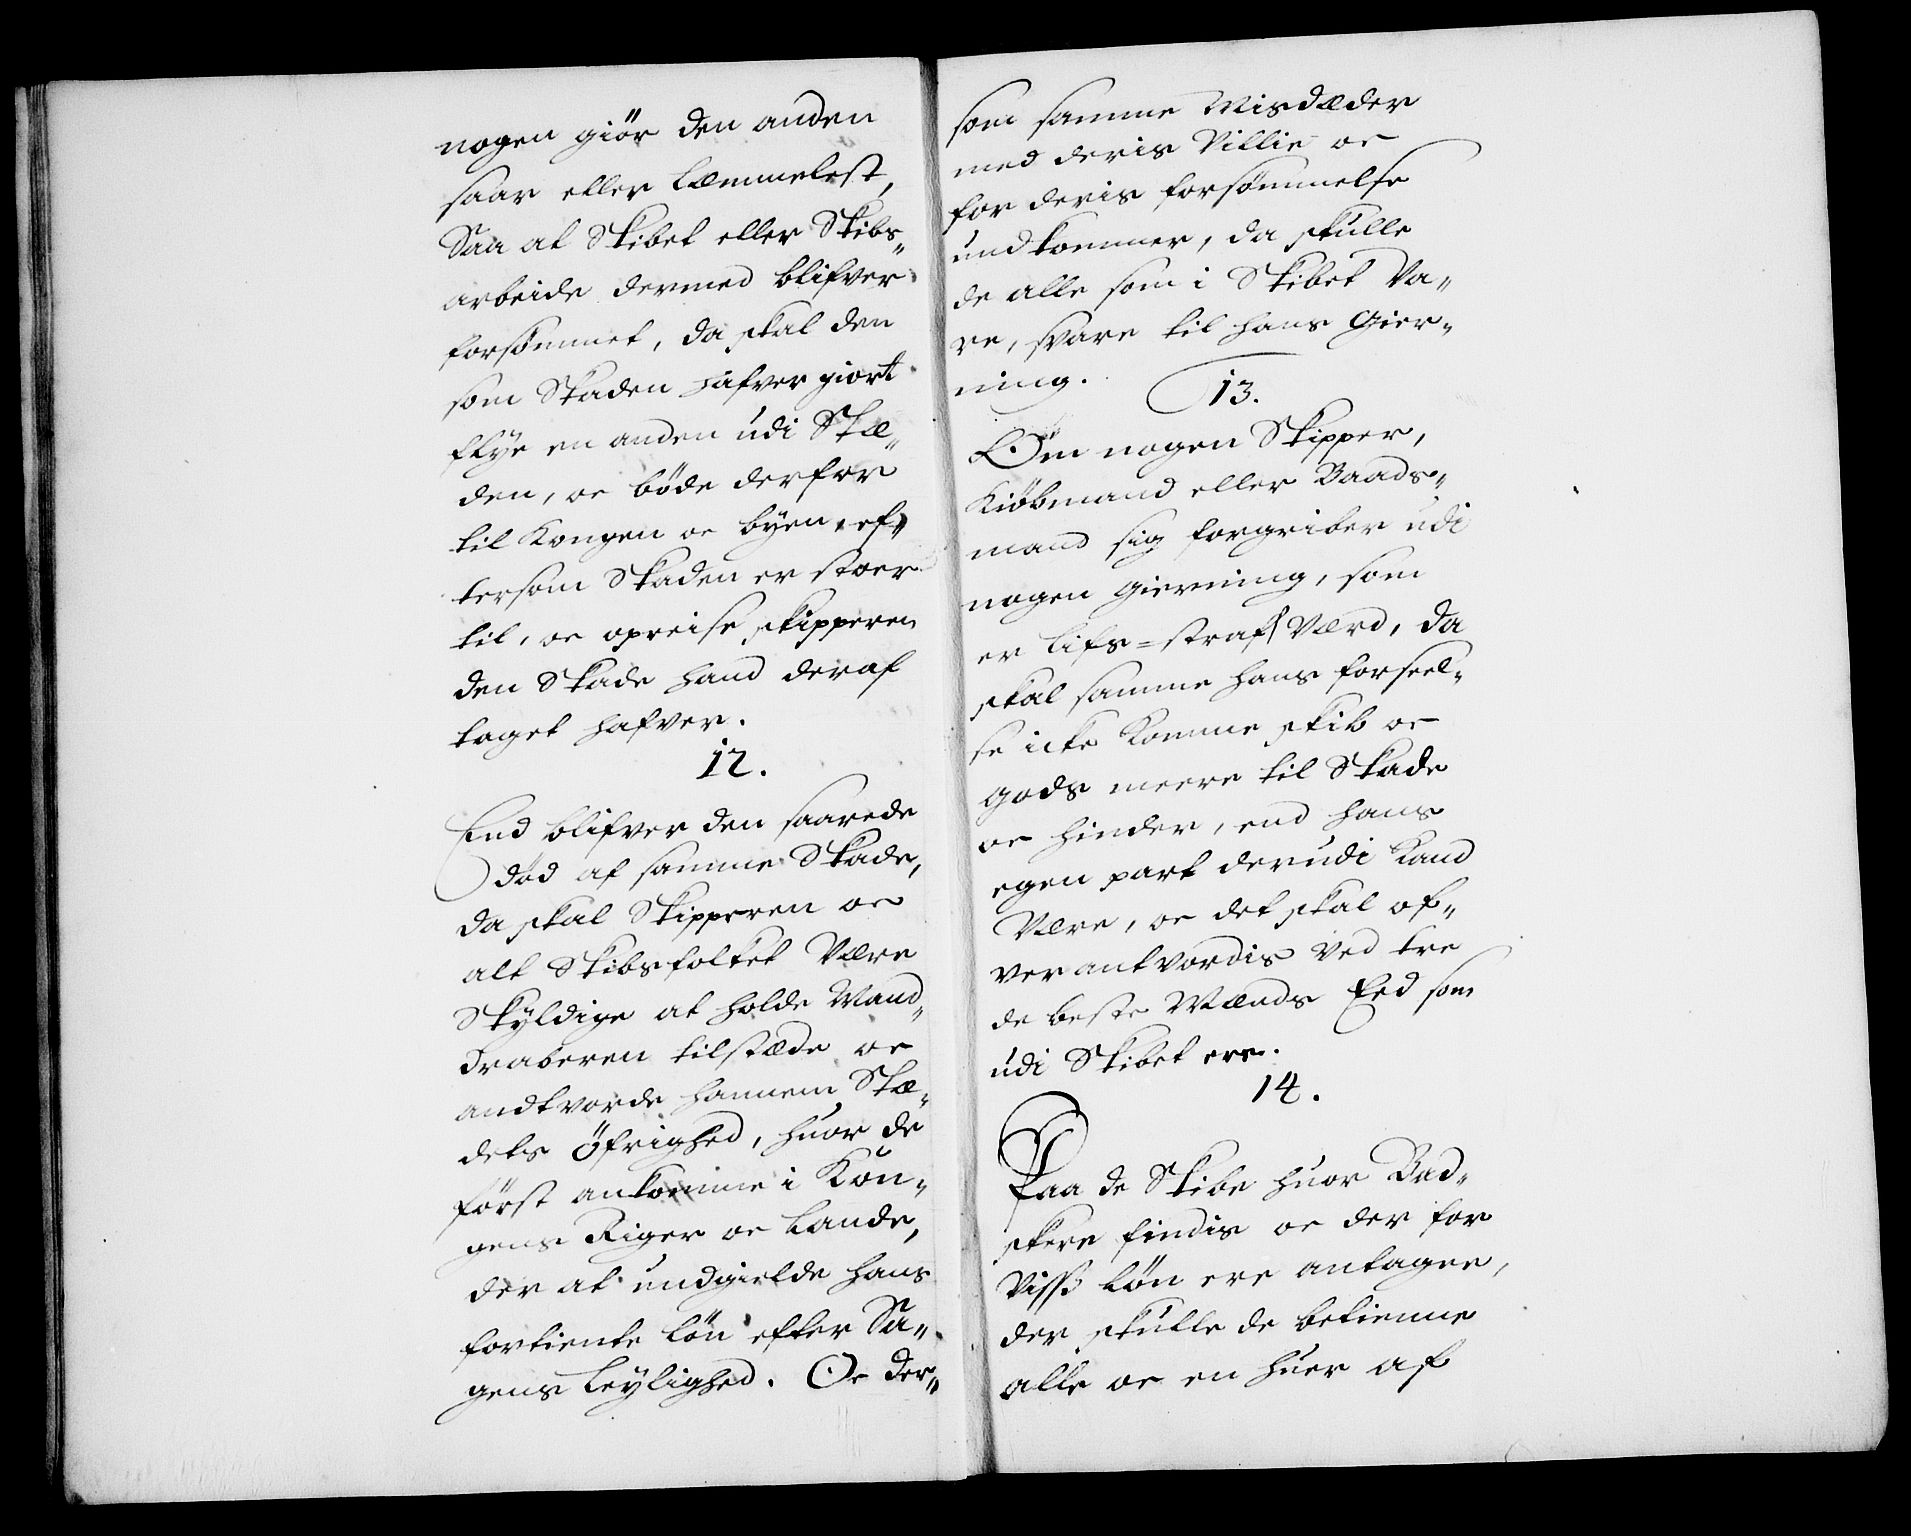 nogen giör den anden
saar eller Læmmelest,
Saa at Skibet eller Skibs„
arbeide dermed blifver
forsömmet, da skal den
som Skaden hafver giort
flÿe en anden udi Stæ„
den, oc böde derfor
til Kongen oc bÿen, ef„
tersom Skaden er stoer
til, oc opreise skipperen
den Skade hand deraf
taget hafver.
12.
End blifver den saarede
död af samme Skade,
da skal Skipperen oc
alt Skibsfolket være
Skÿldige at holde Mand„
draberen tilstæde oc
andtvorde hannem Stæ„
dets Öfrighed, huor de
först ankomme i Kon„
gens Riger oc Lande,
der at undgielde hans
fortiente Lön efter Sa„
gens Leÿlighed. Oc der„
som samme Misdæder
med deris Villie oc
for deris forsömmelse
undkommer, da skulle
de alle som i Skibet Va„
re, svare til hans Gier„
ning.
13.
Om nogen Skipper,
Kiöbmand eller Baads„
mand sig forgriber udi
nogen gierning, som
er Lifs=straf Værd, da
skal samme hans forseel„
se icke Komme skib oc
gods meere til Skade
oc hinder, end hans
egen part derudi Kand
Være, oc det skal of„
verantvordis ved tre
de beste Mænds Eed som
udi Skibet ere.
14.
Paa de Skibe huor Bad„
skere findis oc der for
Viss Lön ere antagne,
der skulle de betienne
alle oc en huer af